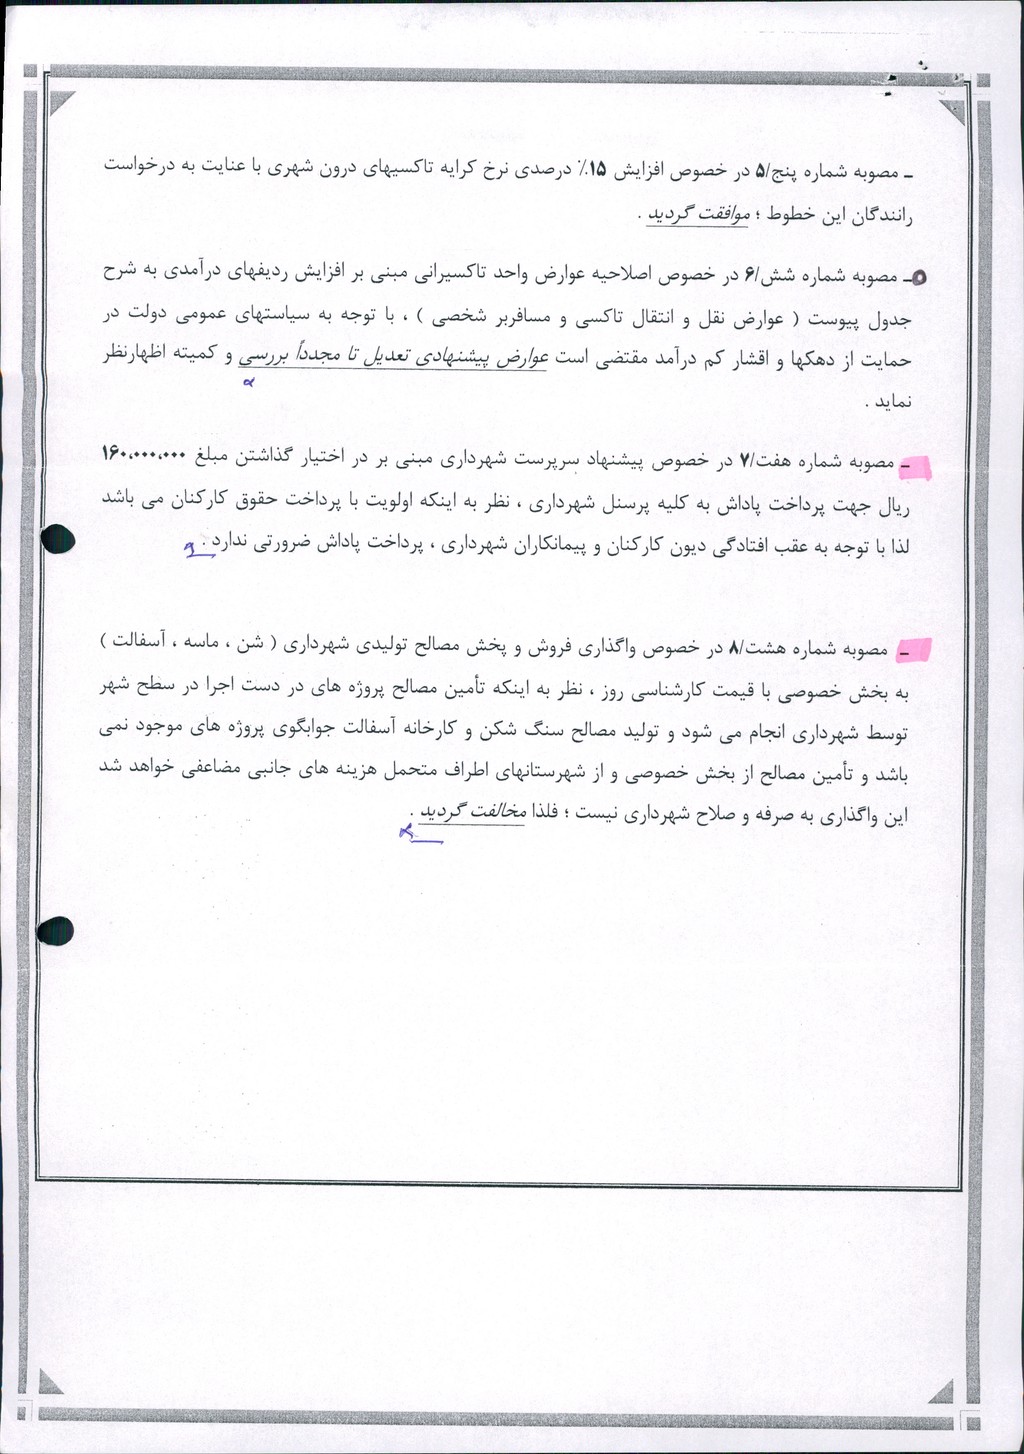 ـ مصوبه شماره پنج/۵ در خصوص افزایش ۱۵٪ درصدی نرخ کرایه تاکسیهای درون شهری با عنایت به درخواست
رانندگان این خطوط ؛ موافقت گردید .
ـ مصوبه شماره شش/۶ در خصوص اصلاحیه عوارض واحد تاکسیرانی مبنی بر افزایش ردیفهای درآمدی به شرح
جدول پیوست ( عوارض نقل و انتقال تاکسی و مسافربر شخصی ) ، با توجه به سیاستهای عمومی دولت در
حمایت از دهکها و اقشار کم درآمد مقتضی است عوارض پیشنهادی تعدیل تا مجدداً بررسی و کمیته اظهارنظر
نماید .
ـ مصوبه شماره هفت/۷ در خصوص پیشنهاد سرپرست شهرداری مبنی بر در اختیار گذاشتن مبلغ ۱۶۰،۰۰۰،۰۰۰
ریال جهت پرداخت پاداش به کلیه پرسنل شهرداری ، نظر به اینکه اولویت با پرداخت حقوق کارکنان می باشد
لذا با توجه به عقب افتادگی دیون کارکنان و پیمانکاران شهرداری ، پرداخت پاداش ضرورتی ندارد .
ـ مصوبه شماره هشت/۸ در خصوص واگذاری فروش و پخش مصالح تولیدی شهرداری ( شن ، ماسه ، آسفالت )
به بخش خصوصی با قیمت کارشناسی روز ، نظر به اینکه تأمین مصالح پروژه های در دست اجرا در سطح شهر
توسط شهرداری انجام می شود و تولید مصالح سنگ شکن و کارخانه آسفالت جوابگوی پروژه های موجود نمی
باشد و تأمین مصالح از بخش خصوصی و از شهرستانهای اطراف متحمل هزینه های جانبی مضاعفی خواهد شد
این واگذاری به صرفه و صلاح شهرداری نیست ؛ فلذا مخالفت گردید .